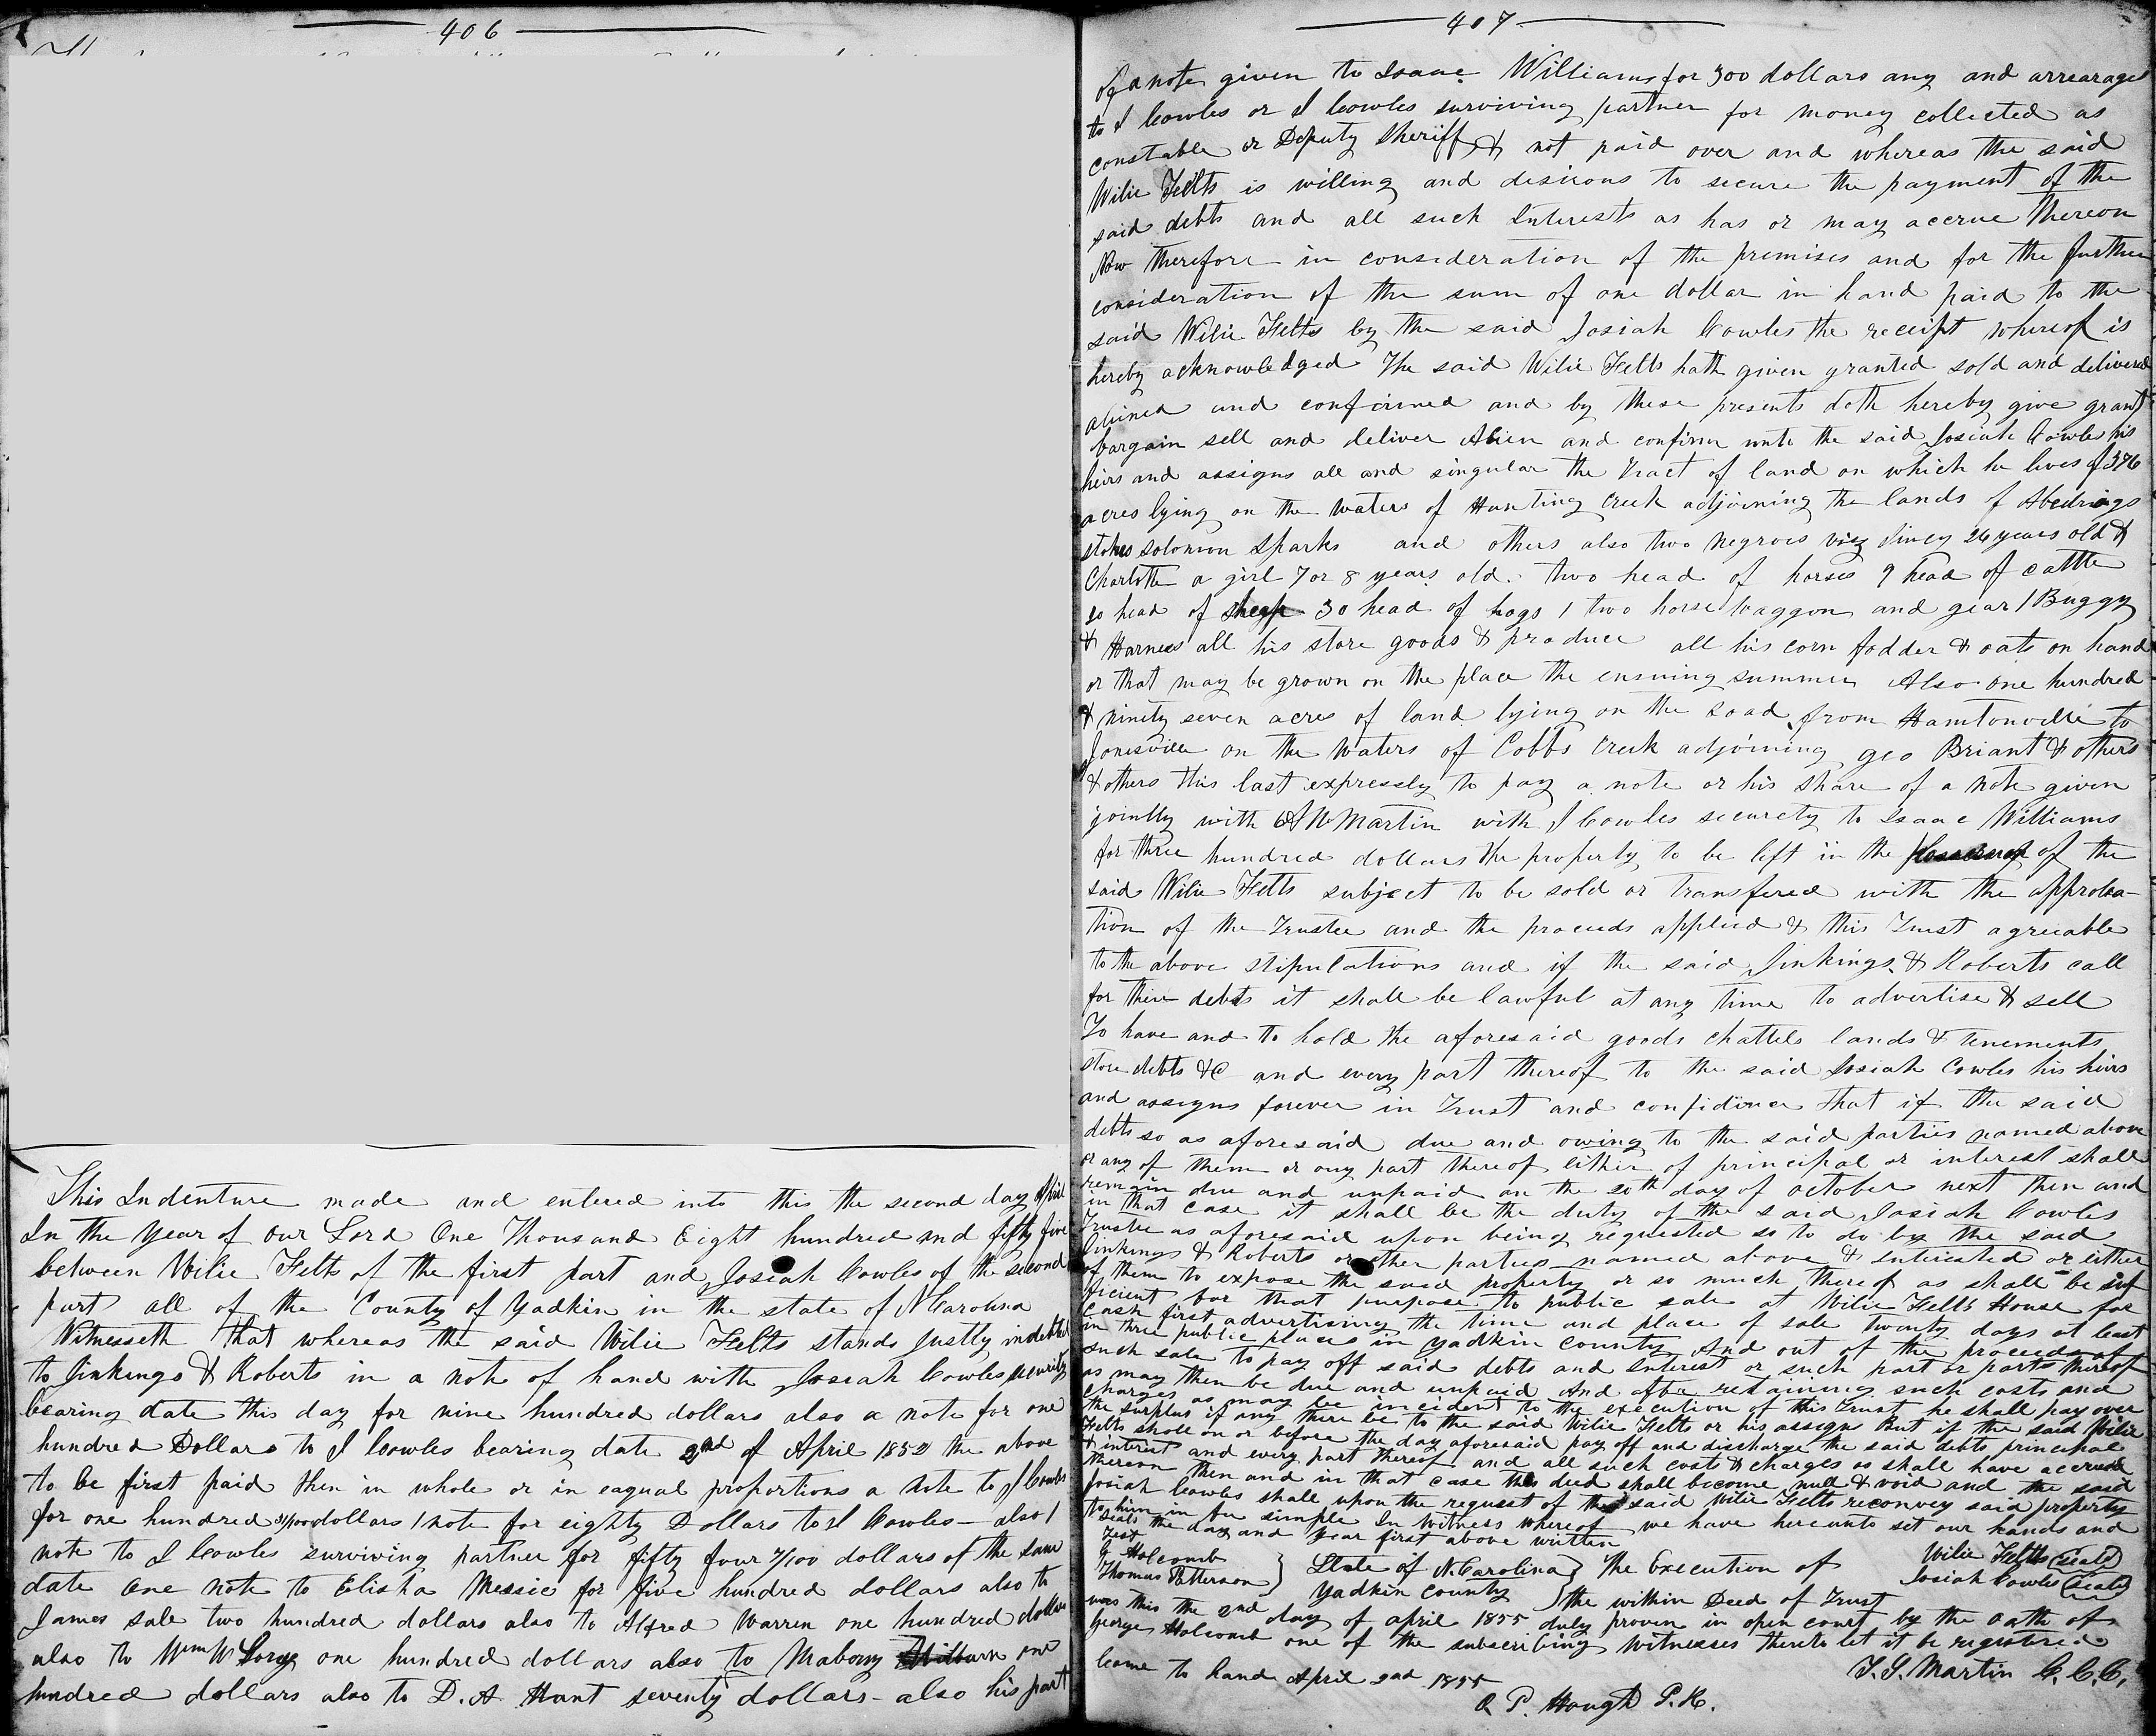 406
This Indenture made and entered into this the second day of April
In the Year of our Lord One Thousand Eight hundred and fifty five
between Wilie Felts of the first part and Josiah Cowles of the second
part all of the County of Yadkin in the state of N Carolina
Witnesseth that whereas the said Wilie Felts stands Justly indebted
to Jinkings & Roberts in a note of hand with Josiah Cowles security
bearing date this day for nine hundred dollars also a note for one
hundred Dollars to J Cowles bearing date 2nd of April 1852 the above
to be first paid then in whole or in eaqual proportions a note to J Cowles
for one hundred dollars 1 note for eighty Dollars to J Cowles – also 1
note to J Cowles surviving partner for fifty four /100 dollars of the same
date One note to Elisha Messic for five hundred dollars also to
James Sale two hundred dollars also to Alfred Warren one hundred dollars
also to Wm W Long one hundred dollars also to Mabory one
hundred dollars also to D. A. Hunt seventy dollars – also his part
407
of a note given to Isaac Williams for 300 dollars any and arrearages
to J Cowles or J Cowles surviving partner for money collected as
constable or Deputy Sheriff & not paid over and whereas the said
Wilie Felts is willing and desirous to secure the payment of the
said debts and all such Interests as has or may accrue thereon
Now therefore in consideration of the premises and for the further
consideration of the sum of one dollar in hand paid to the
said Wilie Felts by the said Josiah Cowles the receipt whereof is
hereby acknowledged The said Wilie Felts hath given granted sold and delivered
aliened and confirmed and by these presents doth hereby give grant
bargain sell and deliver Alien and confirm unto the said Josiah Cowles his
heirs and assigns all and singular the tract of land on which he lives of 376
acres lying on the waters of Hunting Creek adjoining the lands of
Stokes Solomon Sparks and others also two negroes viz Jincy 26 years old &
Charlotte a girl 7 or 8 years old. two head of horses 9 head of cattle
20 head of sheep 30 head of hogs 1 two horse waggon and gear 1 Buggy
& Harness all his store goods & produce all his corn fodder & oats on hand
or that may be grown on the place the ensuing summer Also one hundred
& ninety seven acres of land lying on the road from Hamtonville to
Jonesville on the waters of Cobbs Creek adjoining geo Briant & others
& others this last expressly to pay a note or his share of a note given
jointly with Martin with J Cowles security to Isaac Williams
for three hundred dollars the property to be left in the of the
said Wilie Felts subject to be sold or transfered with the approba-
tion of the Trustee and the proceeds applied & this Trust agreeable
to the above stipulations and if the said Jinkings & Roberts call
for their debts it shall be lawful at any time to advertise & sell
To have and to hold the aforesaid goods chattels lands & tenements
store debts &c and every part thereof to the said Josiah Cowles his heirs
and assigns forever in Trust and confidence that if the said
debts so as aforesaid due and owing to the said parties named above
or any of them or any part thereof either of principal or interest shall
remain due and unpaid on the 20th day of October next then and
in that case it shall be the duty of the said Josiah Cowles
Trustee as aforesaid upon being requested so to do by the said
Jinkings & Roberts or other parties named above & entrusted or either
of them to expose the said property or so much thereof as shall be suf
ficient for that purpose to public sale at Wilie Felts House for
cash first advertising the time and place of sale twenty days at least
in three public places in Yadkin County And out of the proceeds of
such sale to pay off said debts and Interest or such part or parts thereof
as may then be due and unpaid And after retaining such costs and
charges as may be incident to the execution of this Trust he shall pay over
the surplus if any there be to the said Wilie Felts or his assigns But if the said Wilie
Felts shall on or before the day aforesaid pay off and discharge the said debts principal
& interest and every part thereof and all such costs & charges as shall have accrued
thereon then and in that case this deed shall become null & void and the said
Josiah Cowles shall upon the request of the said Wilie Felts reconvey said property
to him in fee simple In Witness whereof we have hereunto set our hands and
seals the day and year first above written
Test
G Holcomb
Thomas Patterson
Wilie Felts (seal)
Josiah Cowles (seal)
State of N. Carolina } The Execution of
Yadkin County } the within Deed of Trust
was this the 2nd day of april 1855 duly proven in open court by the oath of
George Holcomb one of the subscribing witnesses thereto let it be registered
T. S. Martin C.C.C.
Came to hand April 2nd 1855
Q P. Hough P.R.